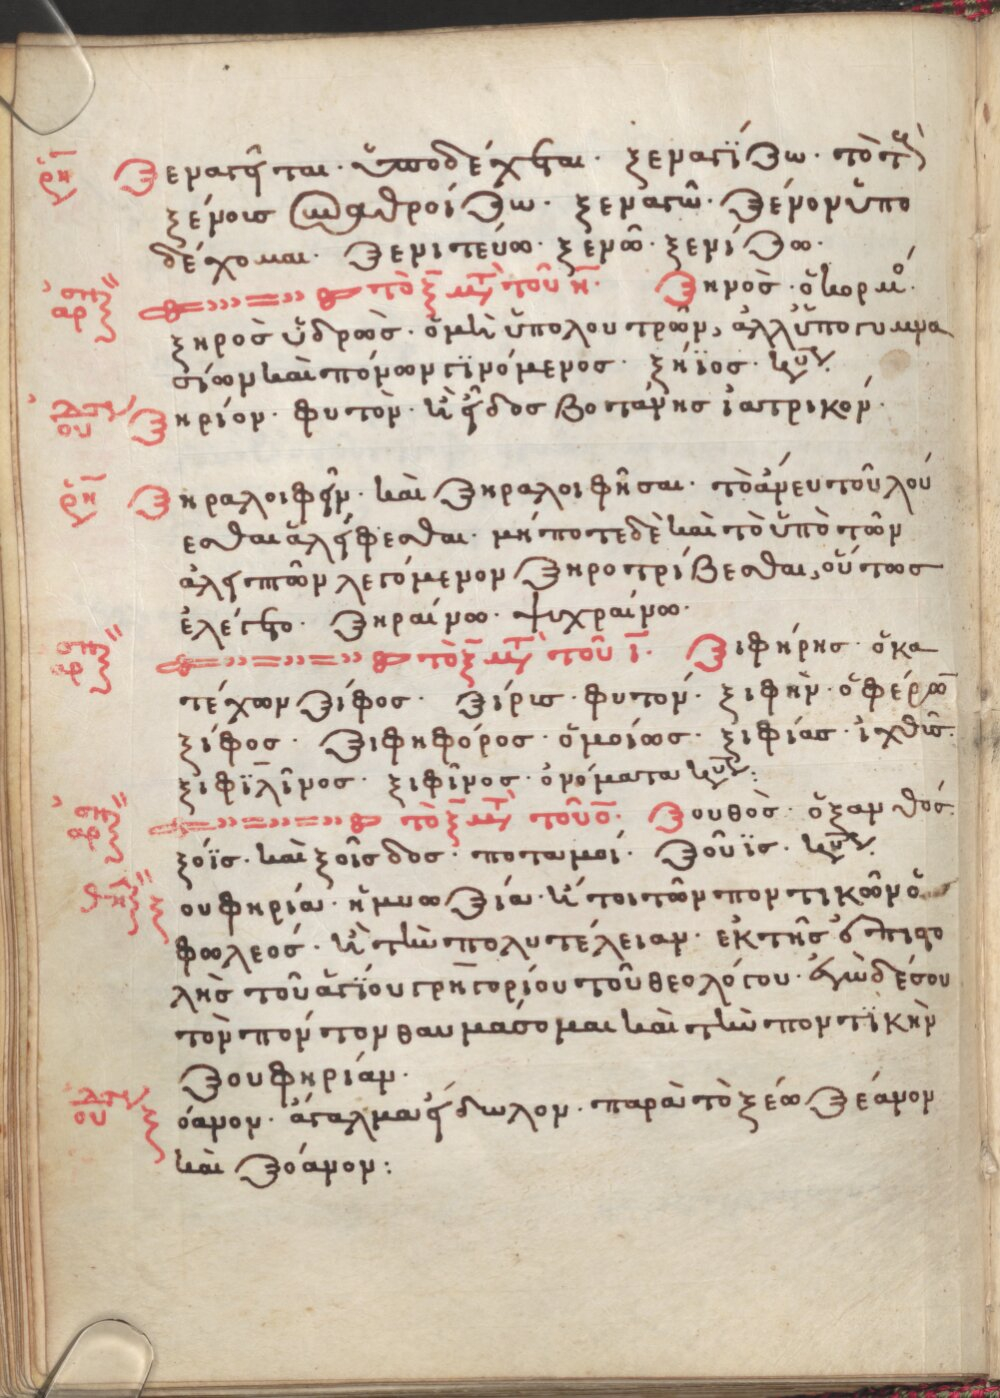 Ξεναγεῖται· ὑποδέχεται· ξεναγίζω· τὸ τοὺς
ξένοις συναθροίζω· ξεναγῶ· ξένον ὑπο
δέχομαι. Ξενιτεύω· ξενῶ· ξενίζω·
τὸ ξ μετὰ τοῦ η. Ξηνὸς· ὁ κορμός·
ξηρὸς ἱδρὼς· ὁ μὴ ὑπὸ λουτρῶν, ἀλλ' ὑπὸ γυμνα
σίων καὶ πόνων γϊνόμενος· ξήϊος· κύριον.
Ξηρίον· φυτὸν· καὶ εἶδος βοτάνης ἰατρικόν·
Ξηραλοιφεῖν· καὶ ξηραλοιφῆσαι· τὸ ἄνευ τοῦ λού
εσθαι ἀλείφεσθαι· μήποτε δὲ καὶ τὸ ὑπὸ τῶν
ἀλειπτῶν λεγόμενον ξηροτρίβεσθαι, οὕτως
ἐλέγετο· Ξηραίνω· ψυχραίνω·
τὸ ξ μετὰ τοῦ ι. Ξιφήρης· ὁ κα
τέχων ξίφος· ξίρις· φυτόν· ξιφὴν· ὁ φέρων
ξίφος· Ξιφηφόρος· ὁμοίως· ξιφίας· ἰχθῦς:
ξιφϊλῖνος· ξιφῖνος· ὀνόματα κύρια:
τὸ ξ μετὰ τοῦ ο. Ξουθὸς· ὁ ξανθός·
ξόϊς· καὶ ξοῒς δος· ποταμοί· Ξοῦϊς· κύριον.
ουφηρία· ἡ μυωξία· ἤτοι τῶν ποντικῶν ὁ
φωλεός· καὶ τὴν πολυτέλειαν· ἐκ τῆς ἐπιστο
λῆς τοῦ ἁγίου γρηγορίου τοῦ θεολόγου· ἐγὼ δέ σου
τὸν πόντον θαυμάσομαι καὶ τὴν ποντϊκὴν
ξουφηρίαν·
όανον· ἄγαλμα εἴδωλον· παρὰ τὸ ξέω ξέανον
καὶ ξόανον: